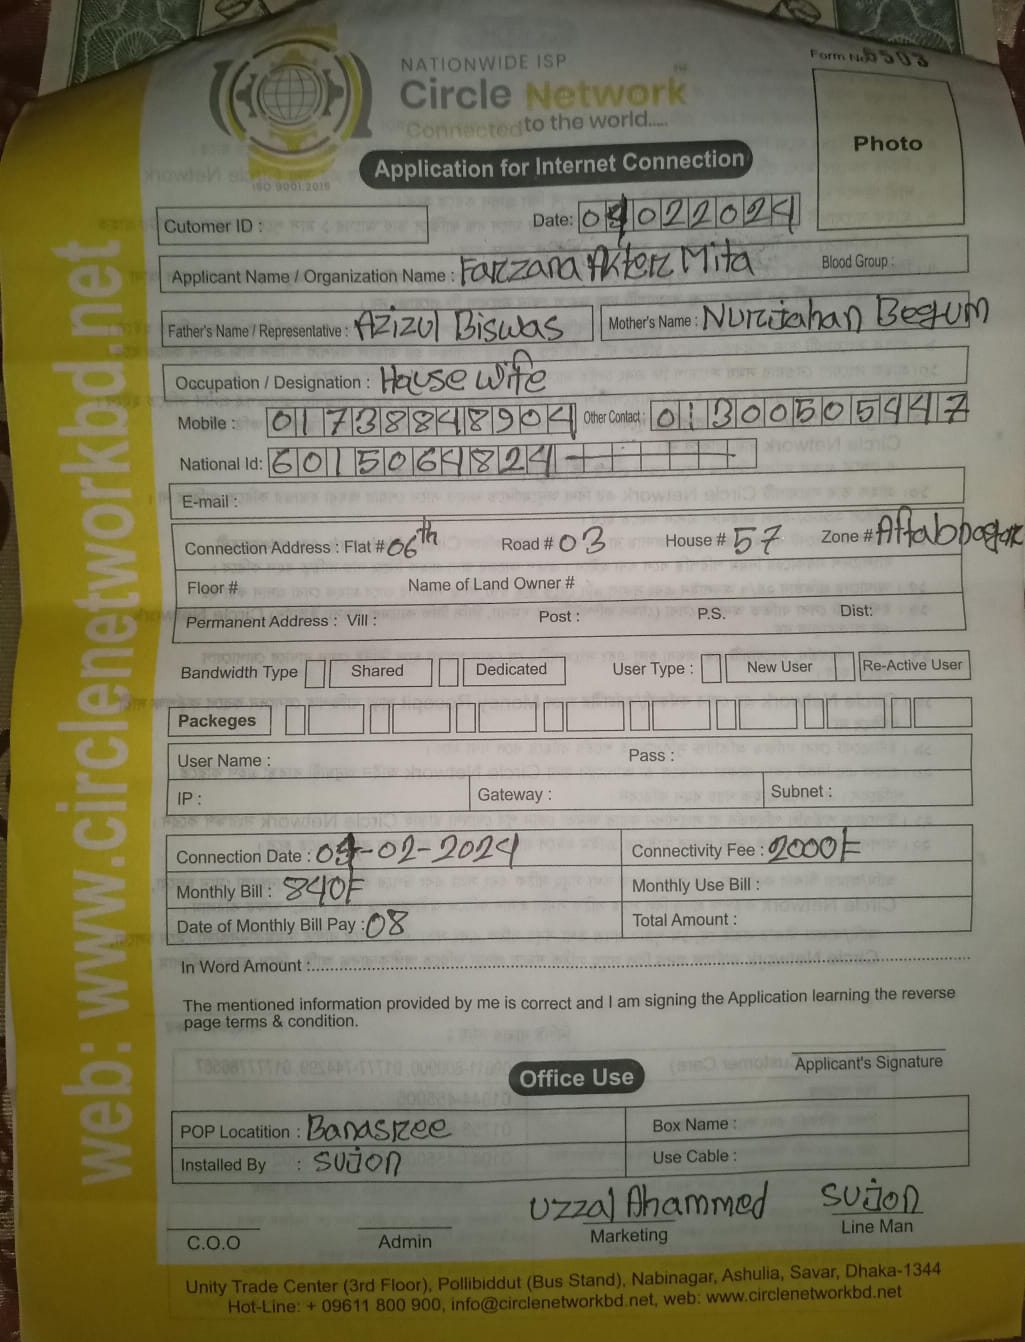 NATIONWIDE ISP
Circle Network
Connected to the world.....
ISO 9001:2015
Form No 6503
Photo
Application for Internet Connection
Cutomer ID :
Date: 09022024
Applicant Name / Organization Name : Farzana Akter Mita
Blood Group :
Father's Name / Representative : Azizul Biswas
Mother's Name : Nurjahan Begum
Occupation / Designation : House wife
Mobile : 01738848904
Other Contact : 01300505447
National Id: 6015064824
E-mail :
Connection Address : Flat # 06th Road # 03 House # 57 Zone # Aftabnagar
Floor # Name of Land Owner #
Permanent Address : Vill : Post : P.S. Dist:
Bandwidth Type Shared Dedicated User Type : New User Re-Active User
Packeges
User Name : Pass :
IP : Gateway : Subnet :
Connection Date : 09-02-2024 Connectivity Fee : 2000৳
Monthly Bill : 840৳ Monthly Use Bill :
Date of Monthly Bill Pay : 08 Total Amount :
In Word Amount :
The mentioned information provided by me is correct and I am signing the Application learning the reverse
page terms & condition.
Applicant's Signature
Office Use
POP Locatition : Banasree Box Name :
Installed By : Sujon Use Cable :
Uzzal Ahammed Sujon
C.O.O Admin Marketing Line Man
Unity Trade Center (3rd Floor), Pollibiddut (Bus Stand), Nabinagar, Ashulia, Savar, Dhaka-1344
Hot-Line: + 09611 800 900, info@circlenetworkbd.net, web: www.circlenetworkbd.net
web: www.circlenetworkbd.net